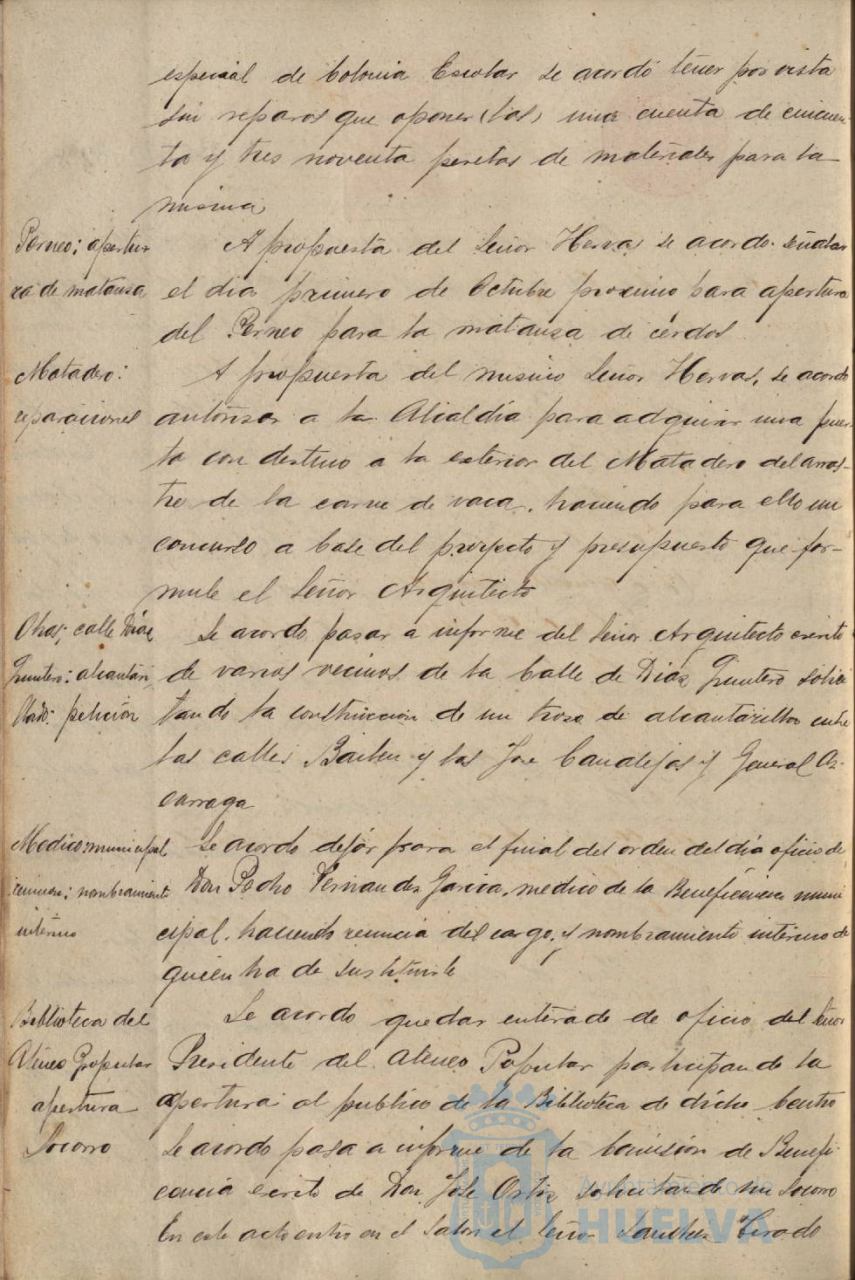 especial de Colonia Escolar se acordó tener por vista
sin reparos que oponer (las) una cuenta de cincuen-
ta y tres noventa pesetas de materiales para la
misma
Perneo; apertu-
ra de matansa
A propuesta del Señor Hervas se acordo señalar
el dia primero de Octubre proximo para apertura
del Perneo para la matansa de cerdos
Matadero:
reparaciones
A propuesta del mismo Señor Hervas, se acordo
autorisar a la Alcaldia para adquirir una puer-
ta con destino a la exterior del Matadero del arras-
tre de la carne de vaca, haciendo para ello un
concurso a base del proyecto y presupuesto que for-
mule el Señor Arquitecto
Obras; calle Díaz
Quintero: alcantari-
llado: petición
Se acordo pasar a informe del Señor Arquitecto escrito
de varios vecinos de la Calle de Diaz Quintero solici-
tando la construccion de un troso de alcantarilla entre
las calles Bailen y las Jose Canalejas y General Az-
carraga
Medico municipal
renuncia; nombramiento
interino
Se acordo dejar para el final del orden del día oficio de
Don Pedro Fernandez Garcia, medico de la Beneficencia muni-
cipal, haciendo renuncia del cargo, y nombramiento interino de
quien ha de sustituirle
Biblioteca del
Ateneo Popular
apertura
Se acordo quedar enterado de oficio del Señor
Presidente del Ateneo Popular participando la
apertura al publico de la Biblioteca de dicho Centro
Socorro
Se acordo pasa a informe de la Comisión de Benefi-
cencia escrito de Don José Ortiz solicitando un Socorro
En este acto entro en el Salon el Señor Sanchez Tirado
Ayuntamiento de
HUELVA